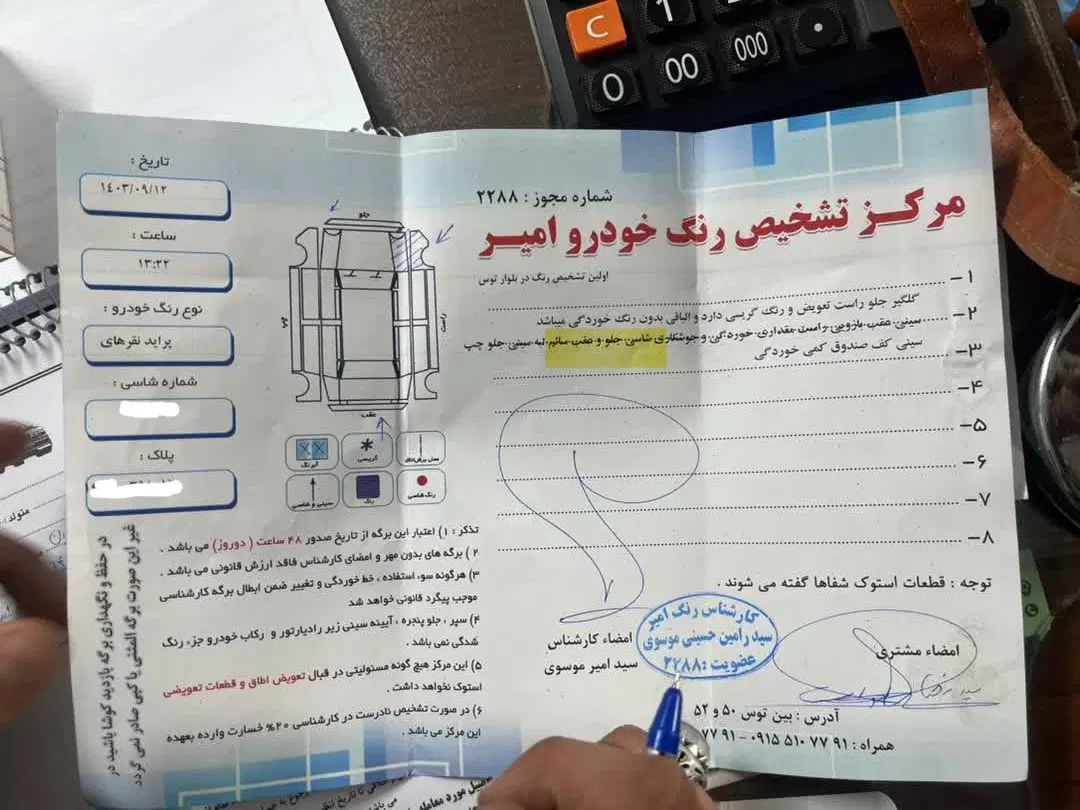 C
1
0
00
000
شماره مجوز : ۲۲۸۸
مرکز تشخیص رنگ خودرو امیر
اولین تشخیص رنگ در بلوار توس
۱-
گلگیر جلو راست تعویض و رنگ گریسی دارد و الباقی بدون رنگ خوردگی میباشد
۲-
سینی عقب بازویی راست مقداری خوردگی و جوشکاری شاسی جلو و عقب سالم لبه سینی جلو چپ
سینی کف صندوق کمی خوردگی
۳-
۴-
۵-
۶-
۷-
۸-
توجه : قطعات استوک شفاها گفته می شوند .
امضاء مشتری
کارشناس رنگ امیر
سید رامین حسینی موسوی
عضویت : ۲۲۸۸
امضاء کارشناس
سید امیر موسوی
آدرس : بین توس ۵۰ و ۵۲
همراه : ۹۱ ۷۷ ۵۱۰ ۰۹۱۵ - ۹۱ ۷۷
تاریخ :
۱۴۰۳/۰۹/۱۲
ساعت :
۱۳:۲۲
نوع رنگ خودرو :
پراید نقرهای
شماره شاسی :
پلاک :
جلو
چپ
راست
عقب
آبرنگ
گریسی
محل برش اتاق
سینی و شاسی
رنگ
رنگ شاسی
تذکر : ۱) اعتبار این برگه از تاریخ صدور ۴۸ ساعت ( دوروز) می باشد .
۲ ) برگه های بدون مهر و امضای کارشناس فاقد ارزش قانونی می باشد .
۳) هرگونه سوء استفاده ، خط خوردگی و تغییر ضمن ابطال برگه کارشناسی
موجب پیگرد قانونی خواهد شد
۴) سپر ، جلو پنجره ، آیینه سینی زیر رادیارتور و رکاب خودرو جزء رنگ
شدگی نمی باشد .
۵) این مرکز هیچ گونه مسئولیتی در قبال تعویض اطاق و قطعات تعویضی
استوک نخواهد داشت .
۶) در صورت تشخیص نادرست در کارشناسی ۲۰% خسارت وارده بعهده
این مرکز می باشد .
در حفظ و نگهداری برگه بازدید کوشا باشید در
غیر این صورت برگه المثنی یا کپی صادر نمی گردد.
متولد: